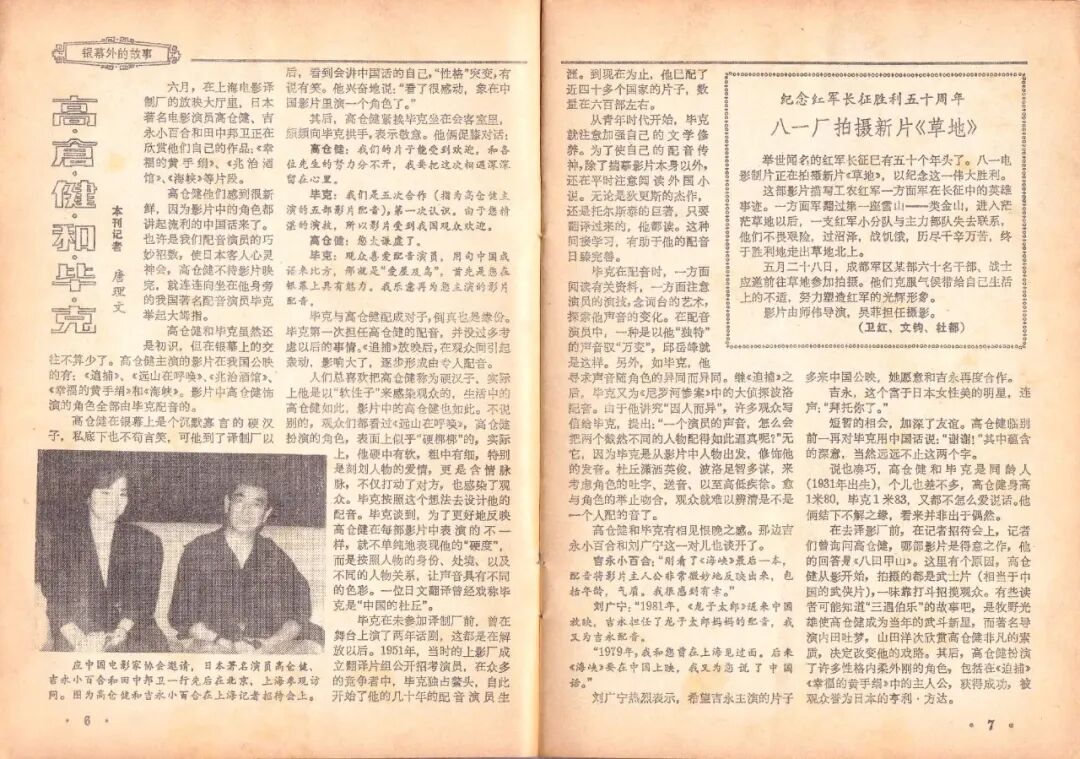 银幕外的故事
高·仓·健·和·毕·克
本刊记者 唐理文
六月，在上海电影译
制厂的放映大厅里，日本
著名电影演员高仓健、吉
永小百合和田中邦卫正在
欣赏他们自己的作品：《幸
福的黄手绢》、《兆治酒
馆》、《海峡》等片段。
高仓健他们感到很新
鲜，因为影片中的角色都
讲起流利的中国话来了。
也许是我们配音演员的巧
妙招数，使日本客人心灵
神会，高仓健不待影片映
完，就连连向坐在他身旁
的我国著名配音演员毕克
举起大姆指。
高仓健和毕克虽然还
是初识，但在银幕上的交
往不算少了。高仓健主演的影片在我国公映
的有：《追捕》、《远山在呼唤》、《兆治酒馆》、
《幸福的黄手绢》和《海峡》。影片中高仓健饰
演的角色全部由毕克配音的。
高仓健在银幕上是个沉默寡言的硬汉
子，私底下也不苟言笑，可他到了译制厂以
应中国电影家协会邀请，日本著名演员高仓健、
吉永小百合和田中邦卫一行先后在北京、上海参观访
问。图为高仓健和吉永小百合在上海记者招待会上。
·6·
后，看到会讲中国话的自己，“性格”突变，有
说有笑。他兴奋地说：“看了很感动，象在中
国影片里演一个角色了。”
其后，高仓健紧挨毕克坐在会客室里，
频频向毕克拱手，表示敬意。他俩促膝对话：
高仓健：我们的片子能受到欢迎，和各
位先生的努力分不开，我要把这次相遇深深
留在心里。
毕克：我们是五次合作（指为高仓健主
演的五部影片配音），第一次认识。由于您精
湛的演技，所以影片受到我国观众欢迎。
高仓健：您太谦虚了。
毕克：观众喜爱配音演员，用句中国成
语来比方，那就是“爱屋及鸟”，首先是您在
银幕上具有魅力。我乐意再为您主演的影片
配音。
毕克与高仓健配成对子，倒真也是缘份。
毕克第一次担任高仓健的配音，并没过多考
虑以后的事情。《追捕》放映后，在观众间引起
轰动，影响大了，逐步形成由专人配音。
人们总喜欢把高仓健称为硬汉子，实际
上他是以“软性子”来感染观众的，生活中的
高仓健如此，影片中的高仓健也如此。不说
别的，观众们都看过《远山在呼唤》，高仓健
扮演的角色，表面上似乎“硬梆梆”的，实际
上，他硬中有软，粗中有细，特别
是刻划人物的爱情，更是含情脉
脉，不仅打动了对方，也感染了观
众。毕克按照这个想法去设计他的
配音。毕克谈到，为了更好地反映
高仓健在每部影片中表演的不一
样，就不单纯地表现他的“硬度”，
而是按照人物的身份、处境，以及
不同的人物关系，让声音具有不同
的色彩。一位日文翻译曾经戏称毕
克是“中国的杜丘”。
毕克在未参加译制厂前，曾在
舞台上演了两年话剧，这都是在解
放以后。1951年，当时的上影厂成
立翻译片组公开招考演员，在众多
的竞争者中，毕克独占鳌头，自此
开始了他的几十年的配音演员生
涯。到现在为止，他已配了
近四十多个国家的片子，数
量在六百部左右。
从青年时代开始，毕克
就注意加强自己的文学修
养。为了使自己的配音传
神，除了揣摹影片本身以外，
还在平时注意阅读外国小
说。无论是狄更斯的杰作，
还是托尔斯泰的巨著，只要
翻译过来的，他都读。这种
间接学习，有助于他的配音
日臻完善。
毕克在配音时，一方面
阅读有关资料，一方面注意
演员的演技，念词台的艺术，
探索他声音的变化。在配音
演员中，一种是以他“独特”
的声音驭“万变”，邱岳峰就
是这样。另外，如毕克，他
寻求声音随角色的异同而异同。继《追捕》之
后，毕克又为《尼罗河惨案》中的大侦探波洛
配音。由于他讲究“因人而异”，许多观众写
信给毕克，提出：“一个演员的声音，怎么会
把两个截然不同的人物配得如此逼真呢？”无
它，因为毕克是从影片中人物出发，修饰他
的发音。杜丘潇洒英俊，波洛足智多谋，来
考虑角色的吐字、送音、以至高低疾徐。愈
与角色的举止吻合，观众就难以辨清是不是
一个人配的音了。
高仓健和毕克有相见恨晚之感。那边吉
永小百合和刘广宁这一对儿也谈开了。
吉永小百合：“刚看了《海峡》最后一本，
配音将影片主人公非常微妙地反映出来，包
括年龄，气质。我很感到有幸。”
刘广宁：“1981年，《龙子太郎》送来中国
放映，吉永担任了龙子太郎妈妈的配音，我
又为吉永配音。
“1979年，我和您曾在上海见过面。后来
《海峡》要在中国上映，我又为您说了中国
话。”
刘广宁热烈表示，希望吉永主演的片子
纪念红军长征胜利五十周年
八一厂拍摄新片《草地》
举世闻名的红军长征已有五十个年头了。八一电
影制片正在拍摄新片《草地》，以纪念这一伟大胜利。
这部影片描写工农红军一方面军在长征中的英雄
事迹。一方面军翻过第一座雪山——类金山，进入茫
茫草地以后，一支红军小分队与主力部队失去联系，
他们不畏艰险，过沼泽，战饥饿，历尽千辛万苦，终
于胜利地走出草地北上。
五月二十八日，成都军区某部六十名干部、战士
应邀前往草地参加拍摄。他们克服气候带给自己生活
上的不适，努力塑造红军的光辉形象。
影片由师伟导演，吴菲担任摄影。
（卫红、文钧、社郡）
多来中国公映，她愿意和吉永再度合作。
吉永，这个富于日本女性美的明星，连
声：“拜托你了。”
短暂的相会，加深了友谊。高仓健临别
前一再对毕克用中国话说：“谢谢！”其中蕴含
的深意，当然远远不止这两个字。
说也凑巧，高仓健和毕克是同龄人
（1931年出生），个儿也差不多，高仓健身高
1米80，毕克1米83，又都不怎么爱说话。他
俩结下不解之缘，看来并非出于偶然。
在去译影厂前，在记者招待会上，记者
们曾询问高仓健，哪部影片是得意之作，他
的回答是《八田甲山》。这里有个原因，高仓
健从影开始，拍摄的都是武士片（相当于中
国的武侠片），一味靠打斗招揽观众。有些读
者可能知道“三遇伯乐”的故事吧，是牧野光
雄使高仓健成为当年的武斗新星，而著名导
演内田吐梦，山田洋次欣赏高仓健非凡的素
质，决定改变他的戏路。其后，高仓健扮演
了许多性格内柔外刚的角色，包括在《追捕》
《幸福的黄手绢》中的主人公，获得成功，被
观众誉为日本的亨利·方达。
·7·